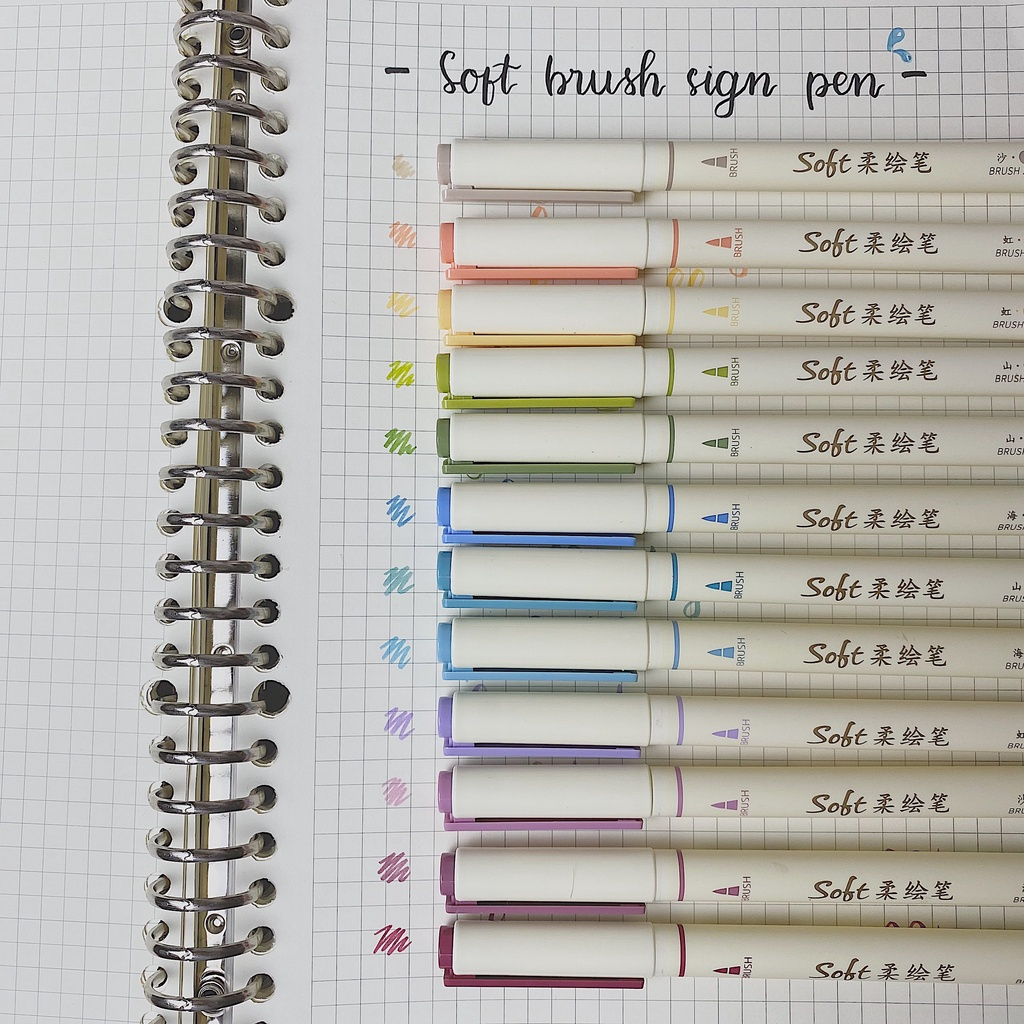 - Soft brush sign pen -
BRUSH Soft 柔绘笔 沙· BRUSH
BRUSH Soft 柔绘笔 虹· BRUSH
BRUSH Soft 柔绘笔 虹· BRUSH
BRUSH Soft 柔绘笔 山· BRUSH
BRUSH Soft 柔绘笔 山· BRUSH
BRUSH Soft 柔绘笔 海· BRUSH
BRUSH Soft 柔绘笔 山 BRUS
BRUSH Soft 柔绘笔 海 BRUS
BRUSH Soft 柔绘笔 虹 BRU
BRUSH Soft 柔绘笔 沙 BRU
BRUSH Soft 柔绘笔
BRUSH Soft 柔绘笔